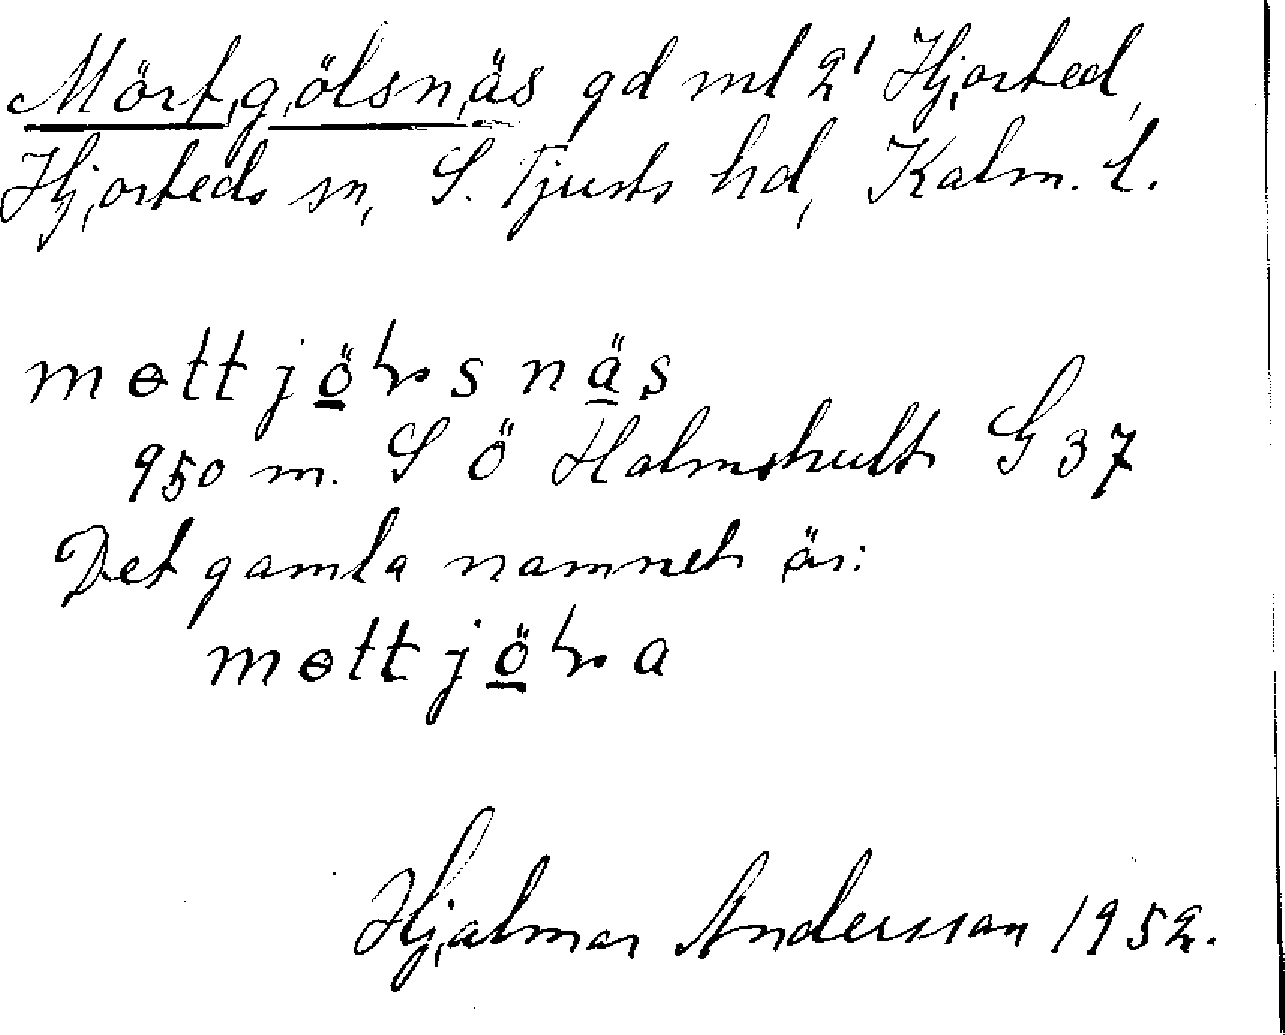 Mörtgölsnäs gd ml 2¹ Hjorted,
Hjorteds sn, S. Tjusts hd, Kalm. l.
mɵttjölsnäs
950 m. S Ö Holmshult G 37
Det gamla namnet är:
mɵttjöla
Hjalmar Andersson 1952.